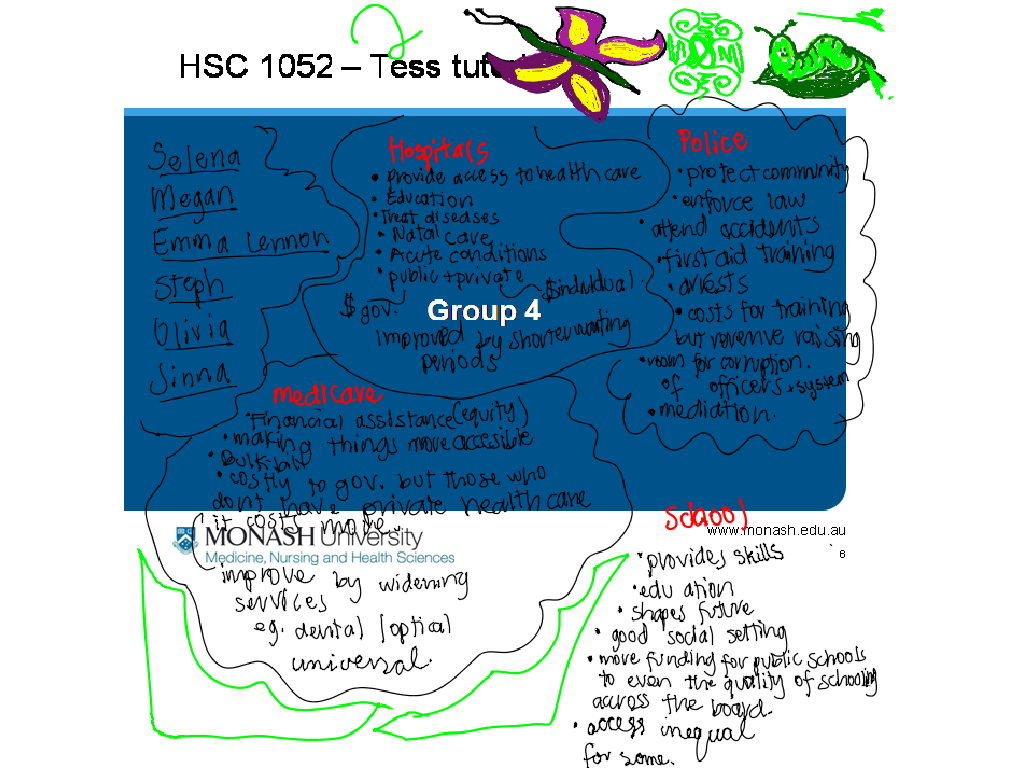 HSC 1052 – Tess tuto
2
Selena
Megan
Emma Lennon
Steph
Olivia
Jinna
Hospitals
• provide access to health care
• Education
• Treat diseases
• Natal care
• Acute conditions
• public + private
$ gov.
$individual.
Group 4
improved by shorter waiting
periods
Police
• protect community
• enforce law
• attend accidents
• first aid training
• arrests
• costs for training
but revenue raising
• room for corruption.
of officers + system
• mediation.
medicare
• Financial assistance (equity)
• making things more accesible
• Bulk bill
• costly to gov. but those who
dont have private health care
it costs more.
improve by widening
services
eg. dental / optical
universal.
MONASH University
Medicine, Nursing and Health Sciences
www.monash.edu.au
School
• provides skills
• edu ation
• shapes future
• good social setting
• more funding for public schools
to even the quality of schooling
across the board.
• access inequal
for some.